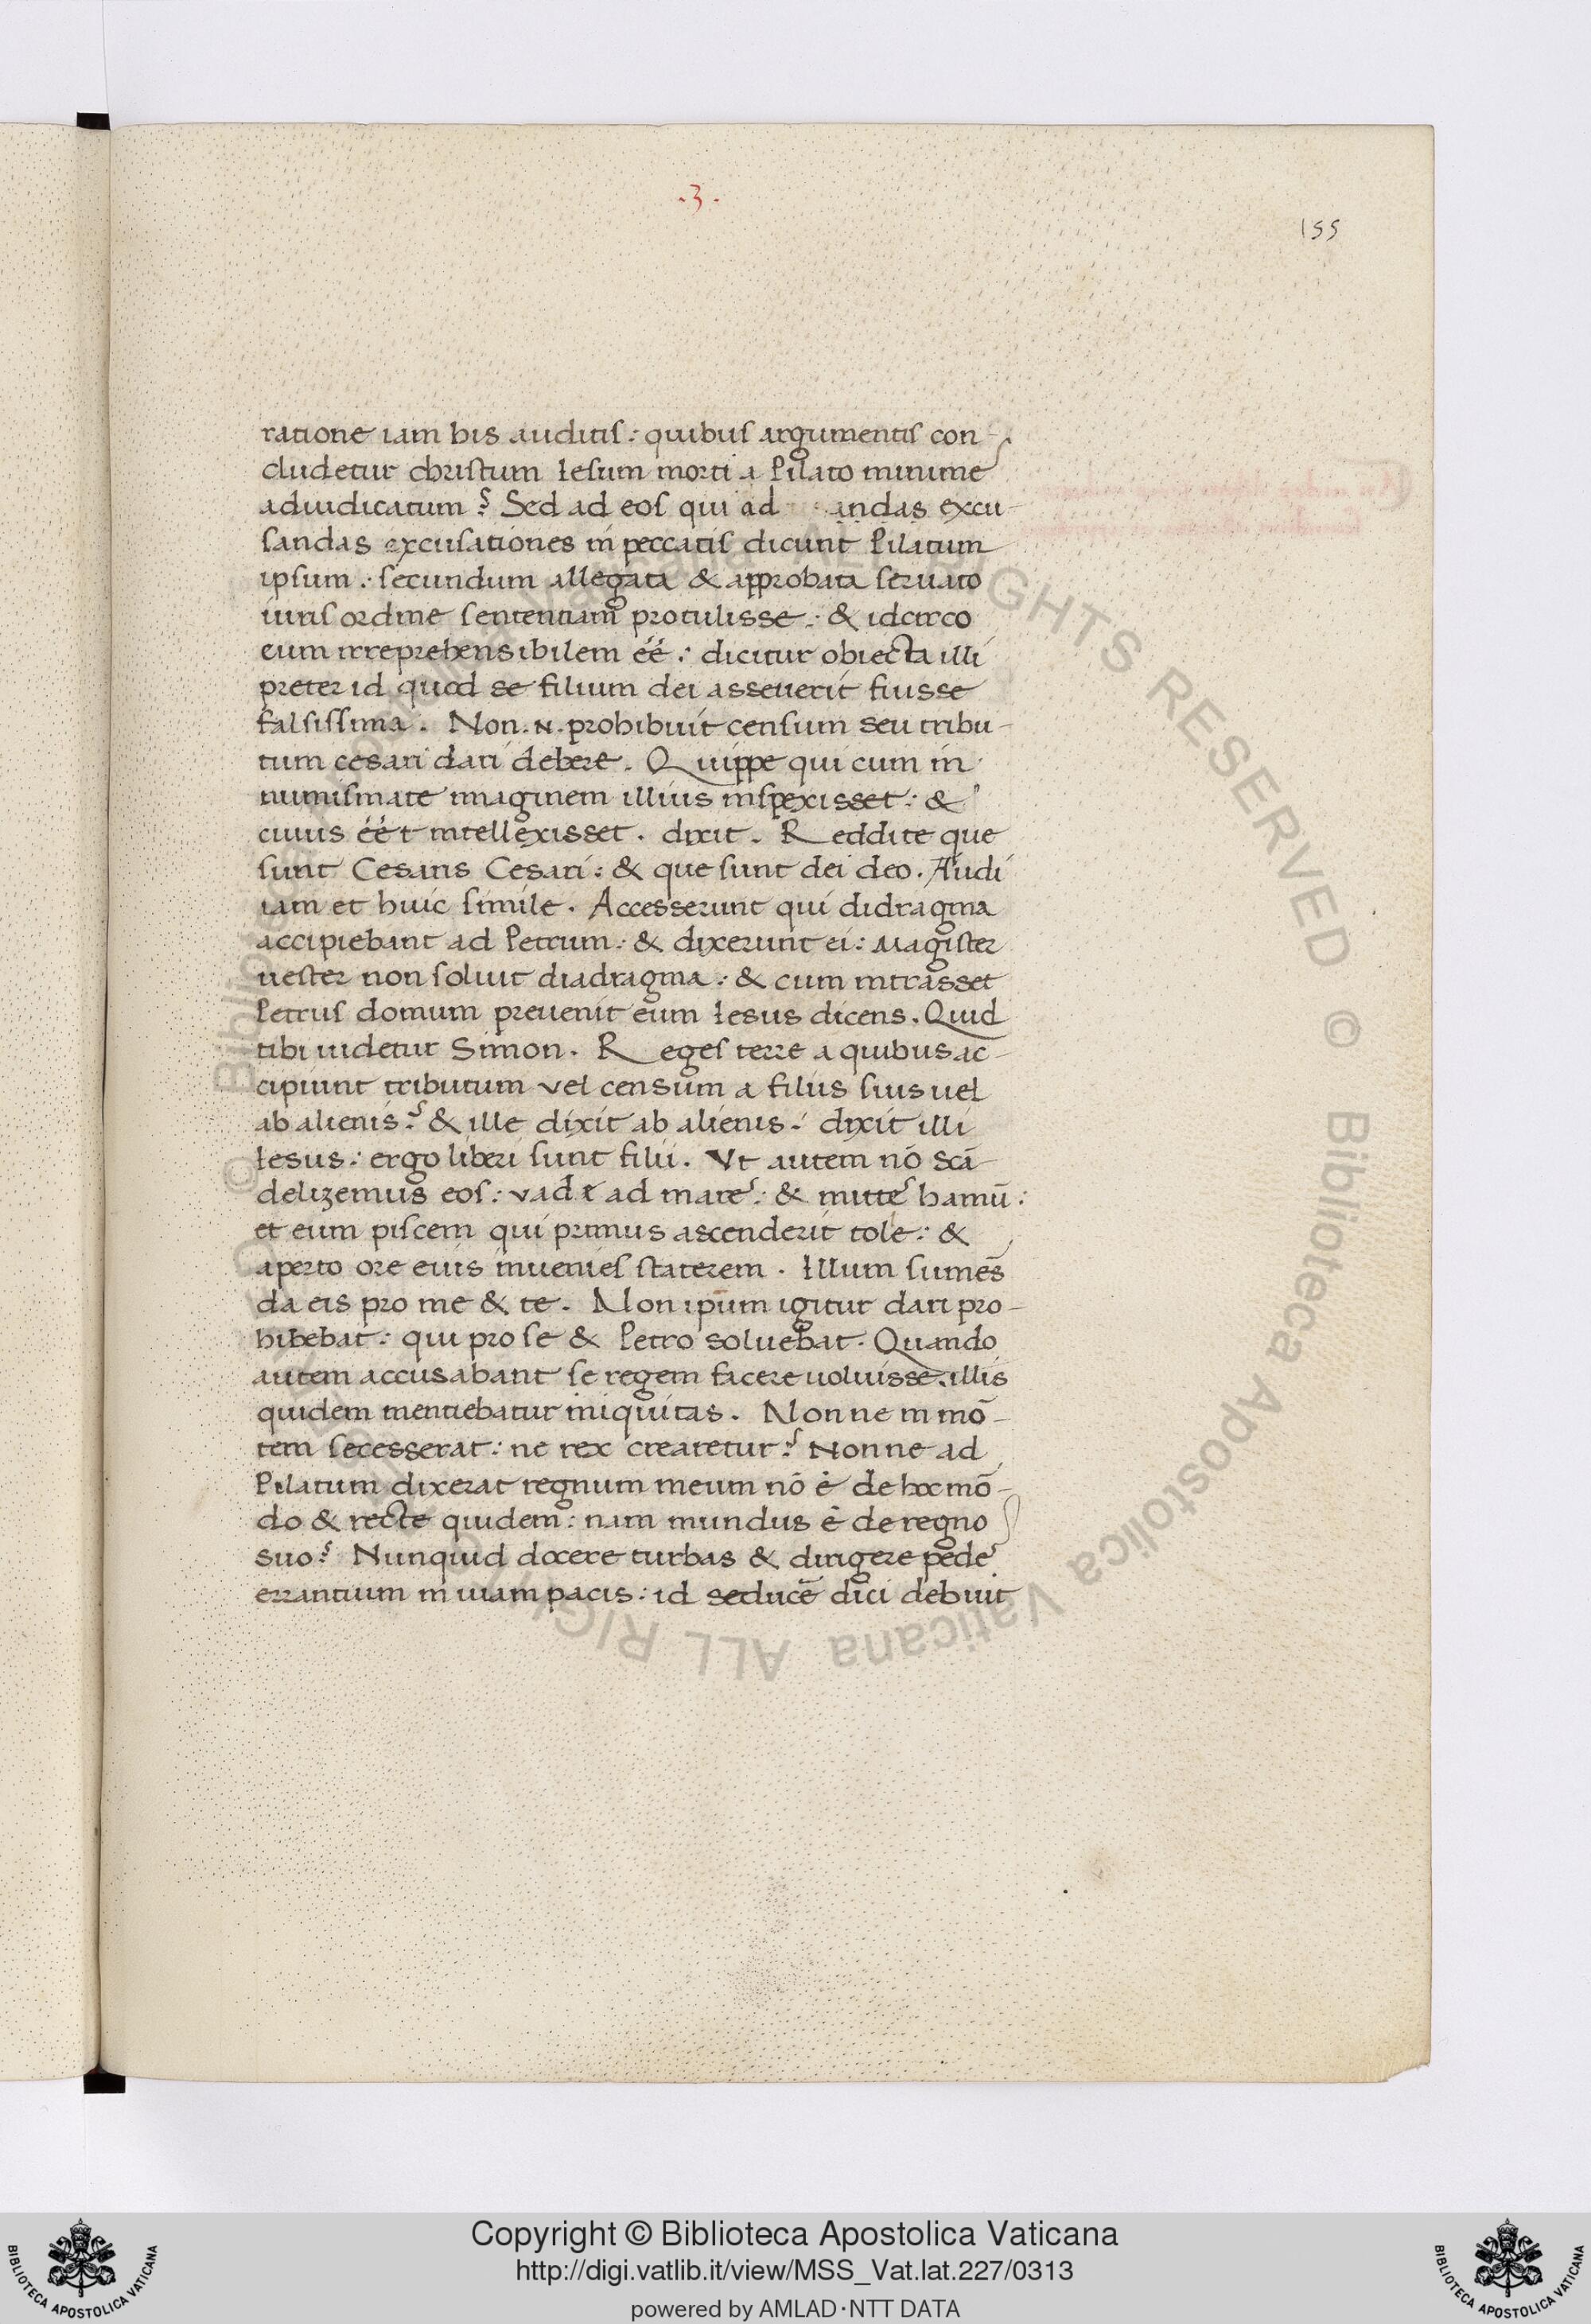 .3.
155
ratione iam his auditis: quibus argumentis con-
cludetur christum Iesum morti a Pilato minime
adiudicatum? Sed ad eos qui ad andas excu-
sandas excusationes in peccatis dicunt Pilatum
ipsum: secundum allegata & approbata seruato
iuris ordine sententiam protulisse: & idcirco
eum irreprehensibilem éé: dicitur obiecta illi
preter id quod se filium dei asseuerit fuisse
falsissima. Non .N. prohibuit censum seu tribu-
tum cesari dari debere. Quippe qui cum in
numismate imaginem illius inspexisset: &
cuius éét intellexisset. dixit. Reddite que
sunt Cesaris Cesari: & que sunt dei deo. Audi
iam et huic simile. Accesserunt qui didragma
accipiebant ad Petrum: & dixerunt ei: Magister
uester non soluit diadragma: & cum intrasset
Petrus domum preuenit eum Iesus dicens. Quid
tibi uidetur Simon. Reges terre a quibus ac-
cipiunt tributum vel censum a filiis suis uel
ab alienis? & ille dixit ab alienis: dixit illi
Iesus: ergo liberi sunt filii. Vt autem nō scā-
delizemus eos: vade ad mare: & mitte hamū:
et eum piscem qui primus ascenderit tole: &
aperto ore eius inuenies staterem. Illum sumēs
da eis pro me & te. Non ipūm igitur dari pro-
hibebat: qui pro se & Petro soluebat. Quando
autem accusabant se regem facere uoluisse. illis
quidem mentiebatur iniquitas. Nonne in mō-
tem secesserat: ne rex crearetur? Nonne ad
Pilatum dixerat regnum meum nō ē de hoc mō-
do & recte quidem: nam mundus ē de regno
suo? Nunquid docere turbas & dirigere pede
errantium in uiam pacis: id seducē dici debuit
© Biblioteca Apostolica Vaticana ALL RIGHTS RESERVED
Copyright © Biblioteca Apostolica Vaticana
http://digi.vatlib.it/view/MSS_Vat.lat.227/0313
powered by AMLAD·NTT DATA
BIBLIOTECA APOSTOLICA VATICANA
BIBLIOTECA APOSTOLICA VATICANA